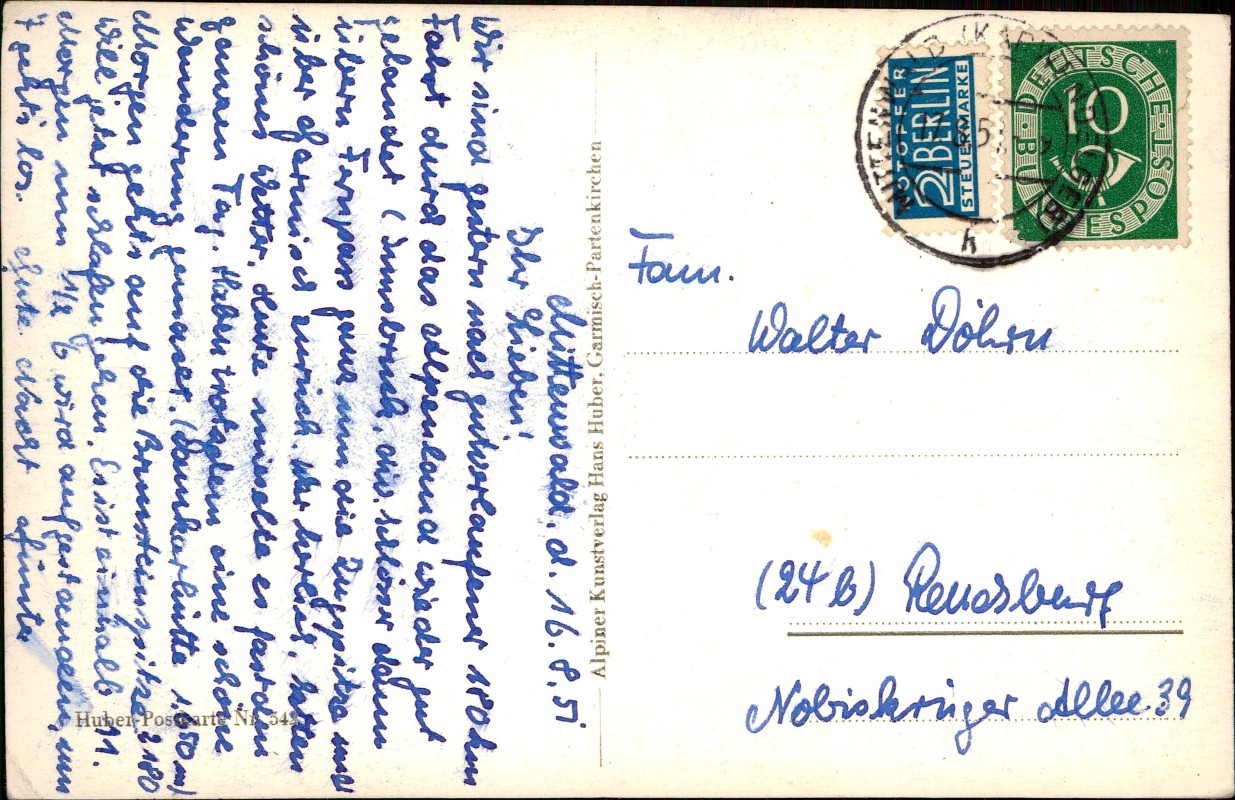 Mittenwald, d. 16. 8. 51
Ihr Lieben!
Wir sind gestern nach gutverlaufener 180 km
Fahrt durch das Alpenland wieder gut
gelandet (Innsbruck, div. Schlösser dann
übern Fernpass ganz um die Zugspitze und
über Garmisch zurück. War herrlich, hatten
schönes Wetter. Heute nieselte es fast den
ganzen Tag. Haben trotzdem eine schöne
Wanderung gemacht. (Dammkarhütte 1650 m)
Morgen gehts auf die Brunnsteinspitze 2180
Will jetzt schlafen gehen. Es ist einhalb 11.
Morgen um 1/2 6 wird aufgestanden, um
7 gehts los. Gute Nacht Günter
Huber-Postkarte Nr. 542
Alpiner Kunstverlag Hans Huber, Garmisch-Partenkirchen
NOTOPFER
2 BERLIN
STEUERMARKE
DEUTSCHE
BUNDESPOST
10
MITTENWALD (KARWENDELGEB)
h
Fam.
Walter Döhrn
(24 b) Rendsburg
Nobiskrüger Allee 39